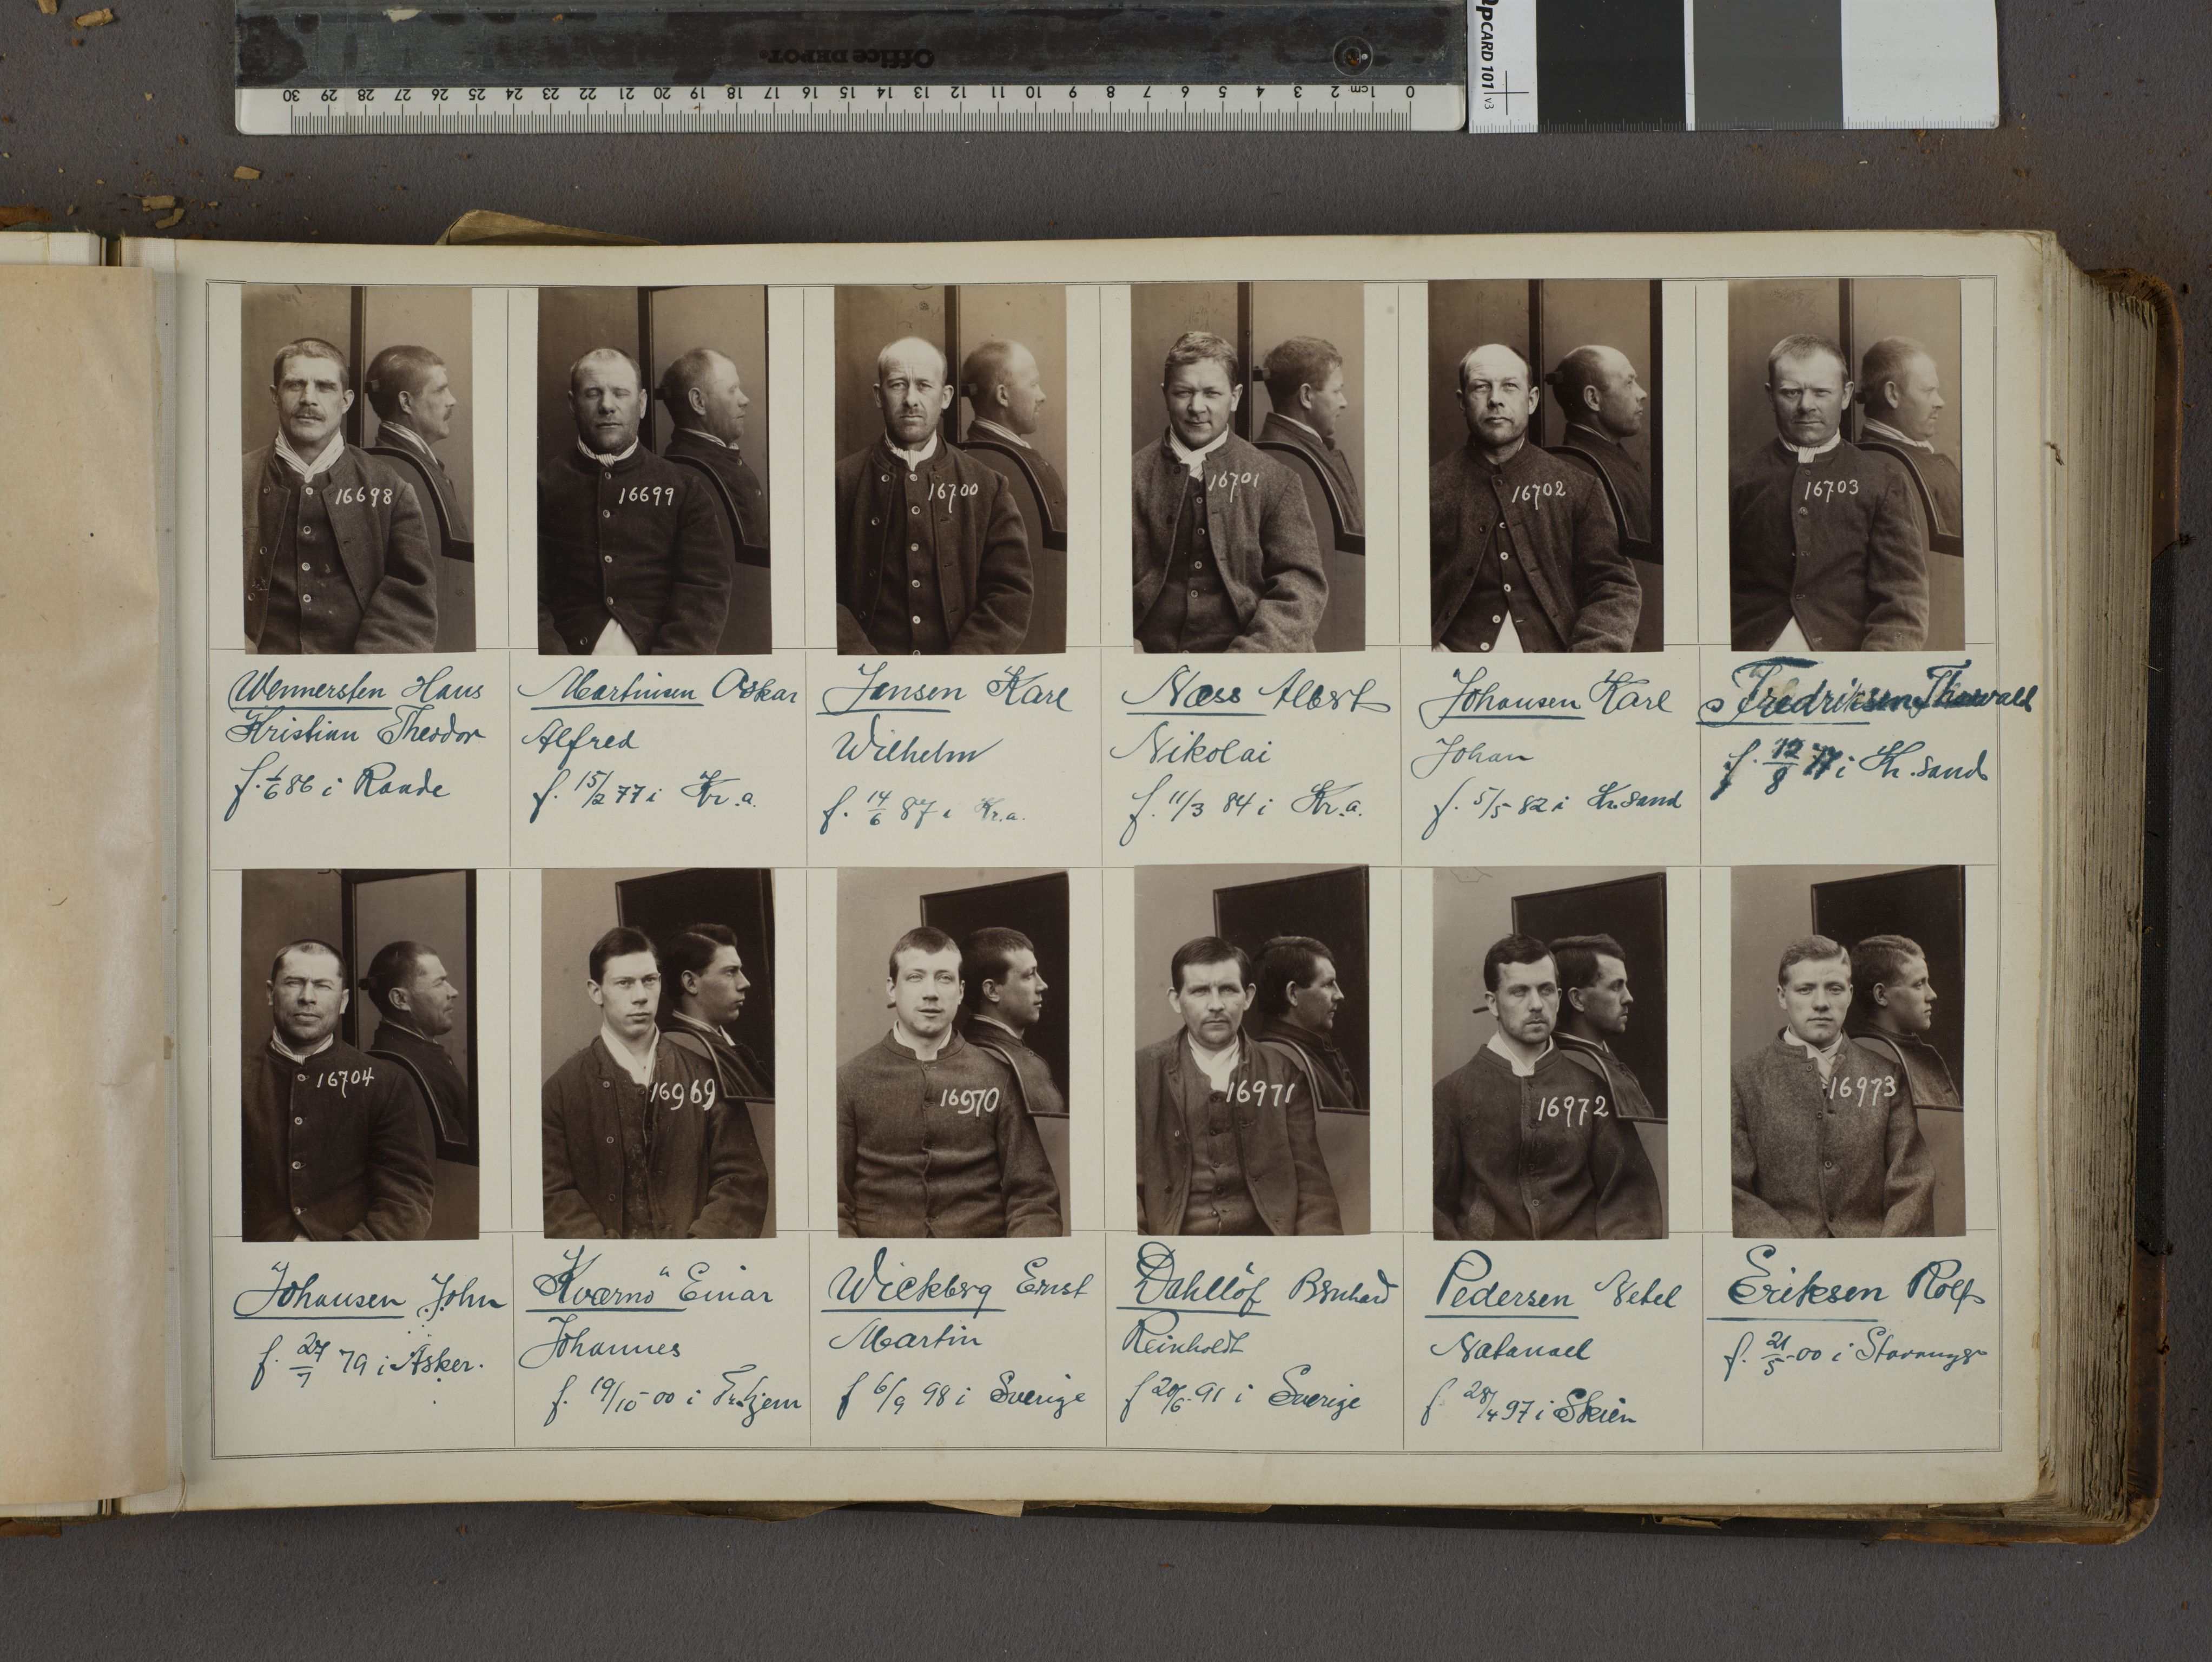 Office DEPOT
30 29 28 27 26 25 24 23 22 21 20 19 18 17 16 15 14 13 12 11 10 9 8 7 6 5 4 3 2 1cm 0
QPCARD 101 v3
16698
16699
16700
16701
16702
16703
Wennersten Hans
Kristian Theodor
f. 1/6 86 i Raade
Martinsen Oskar
Alfred
f. 15/2 77 i Kr.a.
Jansen Karl
Wilhelm
f. 14/6 87 i Kr.a.
Næss Albert
Nikolai
f. 11/3 84 i Kr.a.
Johansen Karl
Johan
f. 5/5 82 i Kr.sand
Fredriksen Thorvald
f. 12/8 77 i Kr.sand
16704
16969
16970
16971
16972
16973
Johansen John
f. 27/7 79 i Asker.
Kværnø Einar
Johannes
f. 19/10 00 i
Wickberg Ernst
Martin
f 6/9 98 i Sverige
Dahllöf Bernhard
Reinholdt
f 20/6 91 i Sverige
Pedersen
Natanael
f 28/4 97 i Skien
Eriksen Rolf
f. 21/5 00 i Stavanger